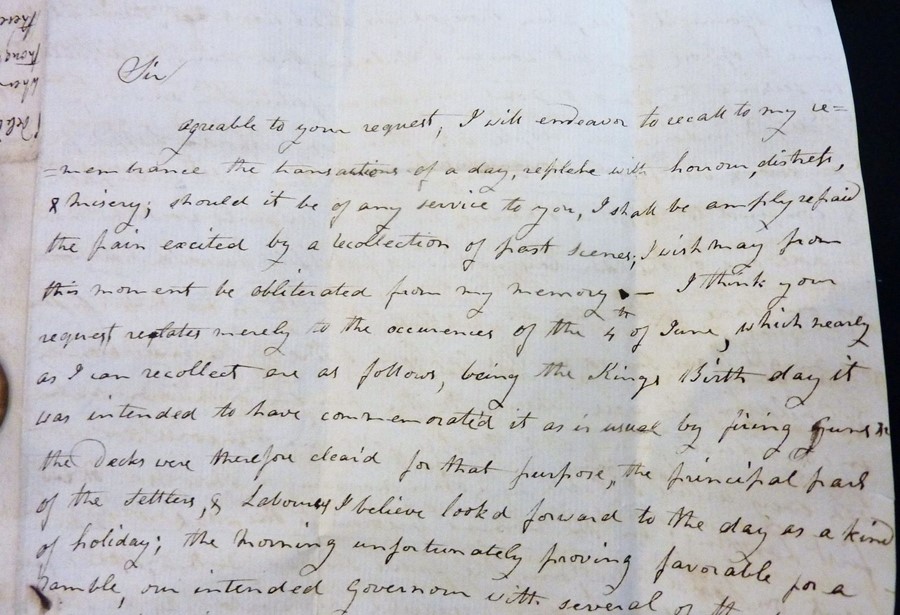 Sir
agreable to your request, I will endeavor to recall to my re=
=membrance the transactions of a day, replete with horrour, distress,
& misery; should it be of any service to you, I shall be amply repaid
the pain excited by a recollection of past scenes, I wish may from
this moment be obliterated from my memory — I think your
request relates merely to the occurences of the 4th of June, which nearly
as I can recollect are as follows, being the Kings Birth day it
was intended to have commemorated it as is usual by firing Guns &c
the Decks were therefore clear'd for that purpose, the principal part
of the Settlers, & Labourers I believe look'd forward to the day as a kind
of holiday; the Morning unfortunately proving favorable for a
ramble, our intended Governour with several of the